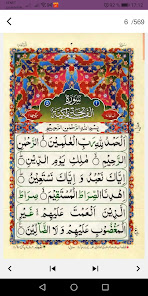 6 /569
سورة الفاتحة مكية
بسم الله الرحمن الرحيم
اَلْحَمْدُ لِلّٰهِ رَبِّ الْعٰلَمِيْنَ ۙ الرَّحْمٰنِ
الرَّحِيْمِ ۙ مٰلِكِ يَوْمِ الدِّيْنِ ؕ
اِيَّاكَ نَعْبُدُ وَ اِيَّاكَ نَسْتَعِيْنُ ؕ
اِهْدِنَا الصِّرَاطَ الْمُسْتَقِيْمَ ۙ صِرَاطَ
الَّذِيْنَ اَنْعَمْتَ عَلَيْهِمْ ۙ غَيْرِ
الْمَغْضُوْبِ عَلَيْهِمْ وَ لَا الضَّآلِّيْنَ